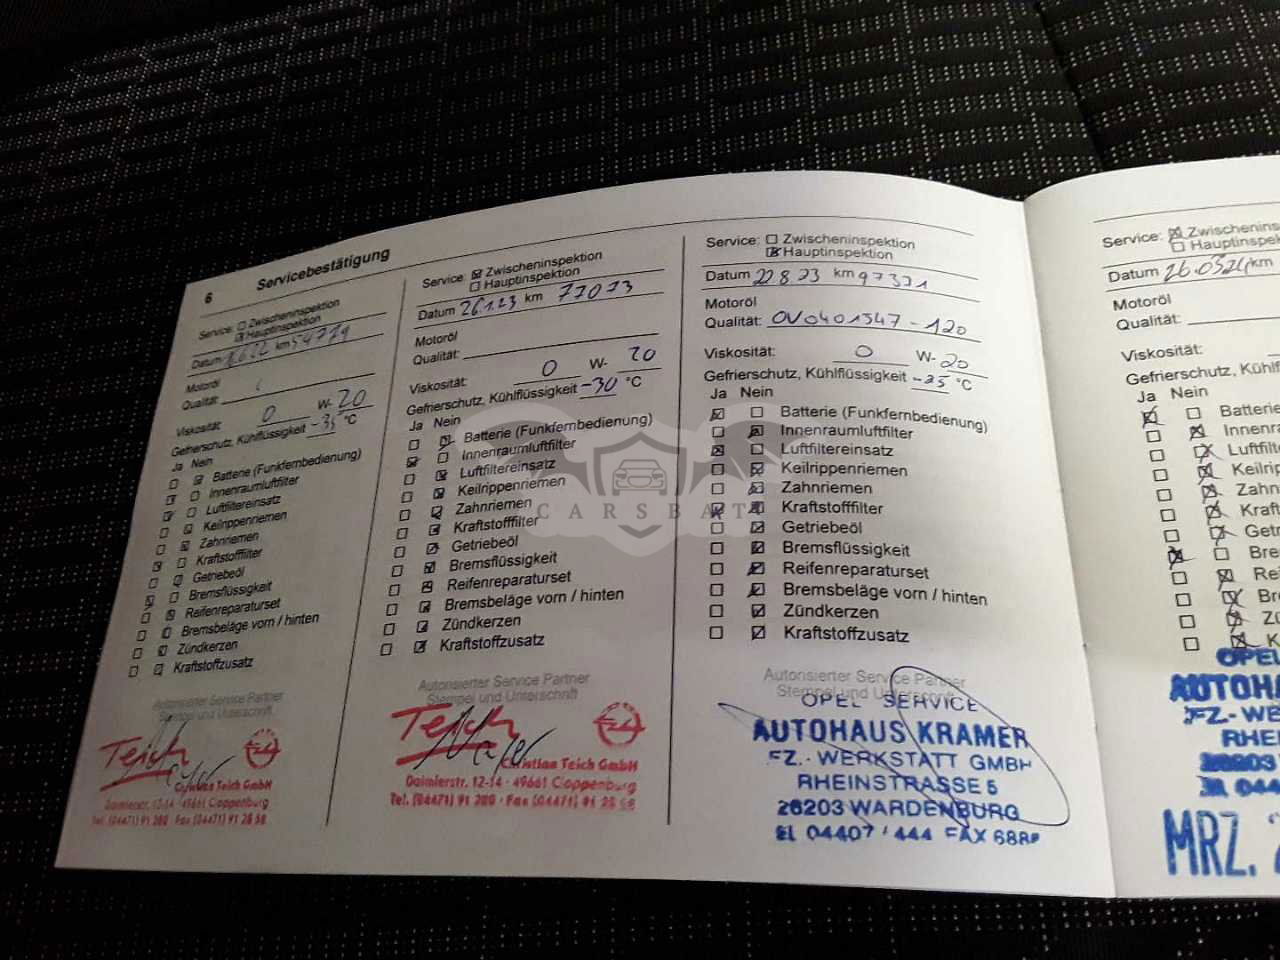 6 Servicebestätigung
Service: Zwischeninspektion
Hauptinspektion
Datum km 54779
Motoröl
Qualität:
Viskosität: 0 W- 20
Gefrierschutz, Kühlflüssigkeit -35 °C
Ja Nein
Batterie (Funkfernbedienung)
Innenraumluftfilter
Luftfiltereinsatz
Keilrippenriemen
Zahnriemen
Kraftstofffilter
Getriebeöl
Bremsflüssigkeit
Reifenreparaturset
Bremsbeläge vorn / hinten
Zündkerzen
Kraftstoffzusatz
Autorisierter Service Partner
Stempel und Unterschrift
Teich
Christian Teich GmbH
Daimlerstr. 12-14 · 49661 Cloppenburg
Tel. (04471) 91 280 · Fax (04471) 91 28 58
Service: Zwischeninspektion
Hauptinspektion
Datum 26.1.23 km 77073
Motoröl
Qualität:
Viskosität: 0 W- 20
Gefrierschutz, Kühlflüssigkeit -30 °C
Ja Nein
Batterie (Funkfernbedienung)
Innenraumluftfilter
Luftfiltereinsatz
Keilrippenriemen
Zahnriemen
Kraftstofffilter
Getriebeöl
Bremsflüssigkeit
Reifenreparaturset
Bremsbeläge vorn / hinten
Zündkerzen
Kraftstoffzusatz
Autorisierter Service Partner
Stempel und Unterschrift
Teich
Christian Teich GmbH
Daimlerstr. 12-14 · 49661 Cloppenburg
Tel. (04471) 91 280 · Fax (04471) 91 28 58
Service: Zwischeninspektion
Hauptinspektion
Datum 22.8.23 km 97331
Motoröl
Qualität: OV0401547-120
Viskosität: 0 W- 20
Gefrierschutz, Kühlflüssigkeit -35 °C
Ja Nein
Batterie (Funkfernbedienung)
Innenraumluftfilter
Luftfiltereinsatz
Keilrippenriemen
Zahnriemen
Kraftstofffilter
Getriebeöl
Bremsflüssigkeit
Reifenreparaturset
Bremsbeläge vorn / hinten
Zündkerzen
Kraftstoffzusatz
Autorisierter Service Partner
Stempel und Unterschrift
OPEL SERVICE
AUTOHAUS KRAMER
FZ.-WERKSTATT GMBH
RHEINSTRASSE 5
26203 WARDENBURG
EL 04407 / 444 FAX 688
Service: Zwischeninsp
Hauptinspekt
Datum 26.03.24 km
Motoröl
Qualität:
Viskosität:
Gefrierschutz, Kühlflüs
Ja Nein
Batterie
Innenra
Luftfilte
Keilrip
Zahnr
Kraft
Getr
Bre
Rei
Br
Zü
K
OPEL
AUTOHA
FZ.-W
RHEI
26203
044
MRZ. 2
CARSBAT